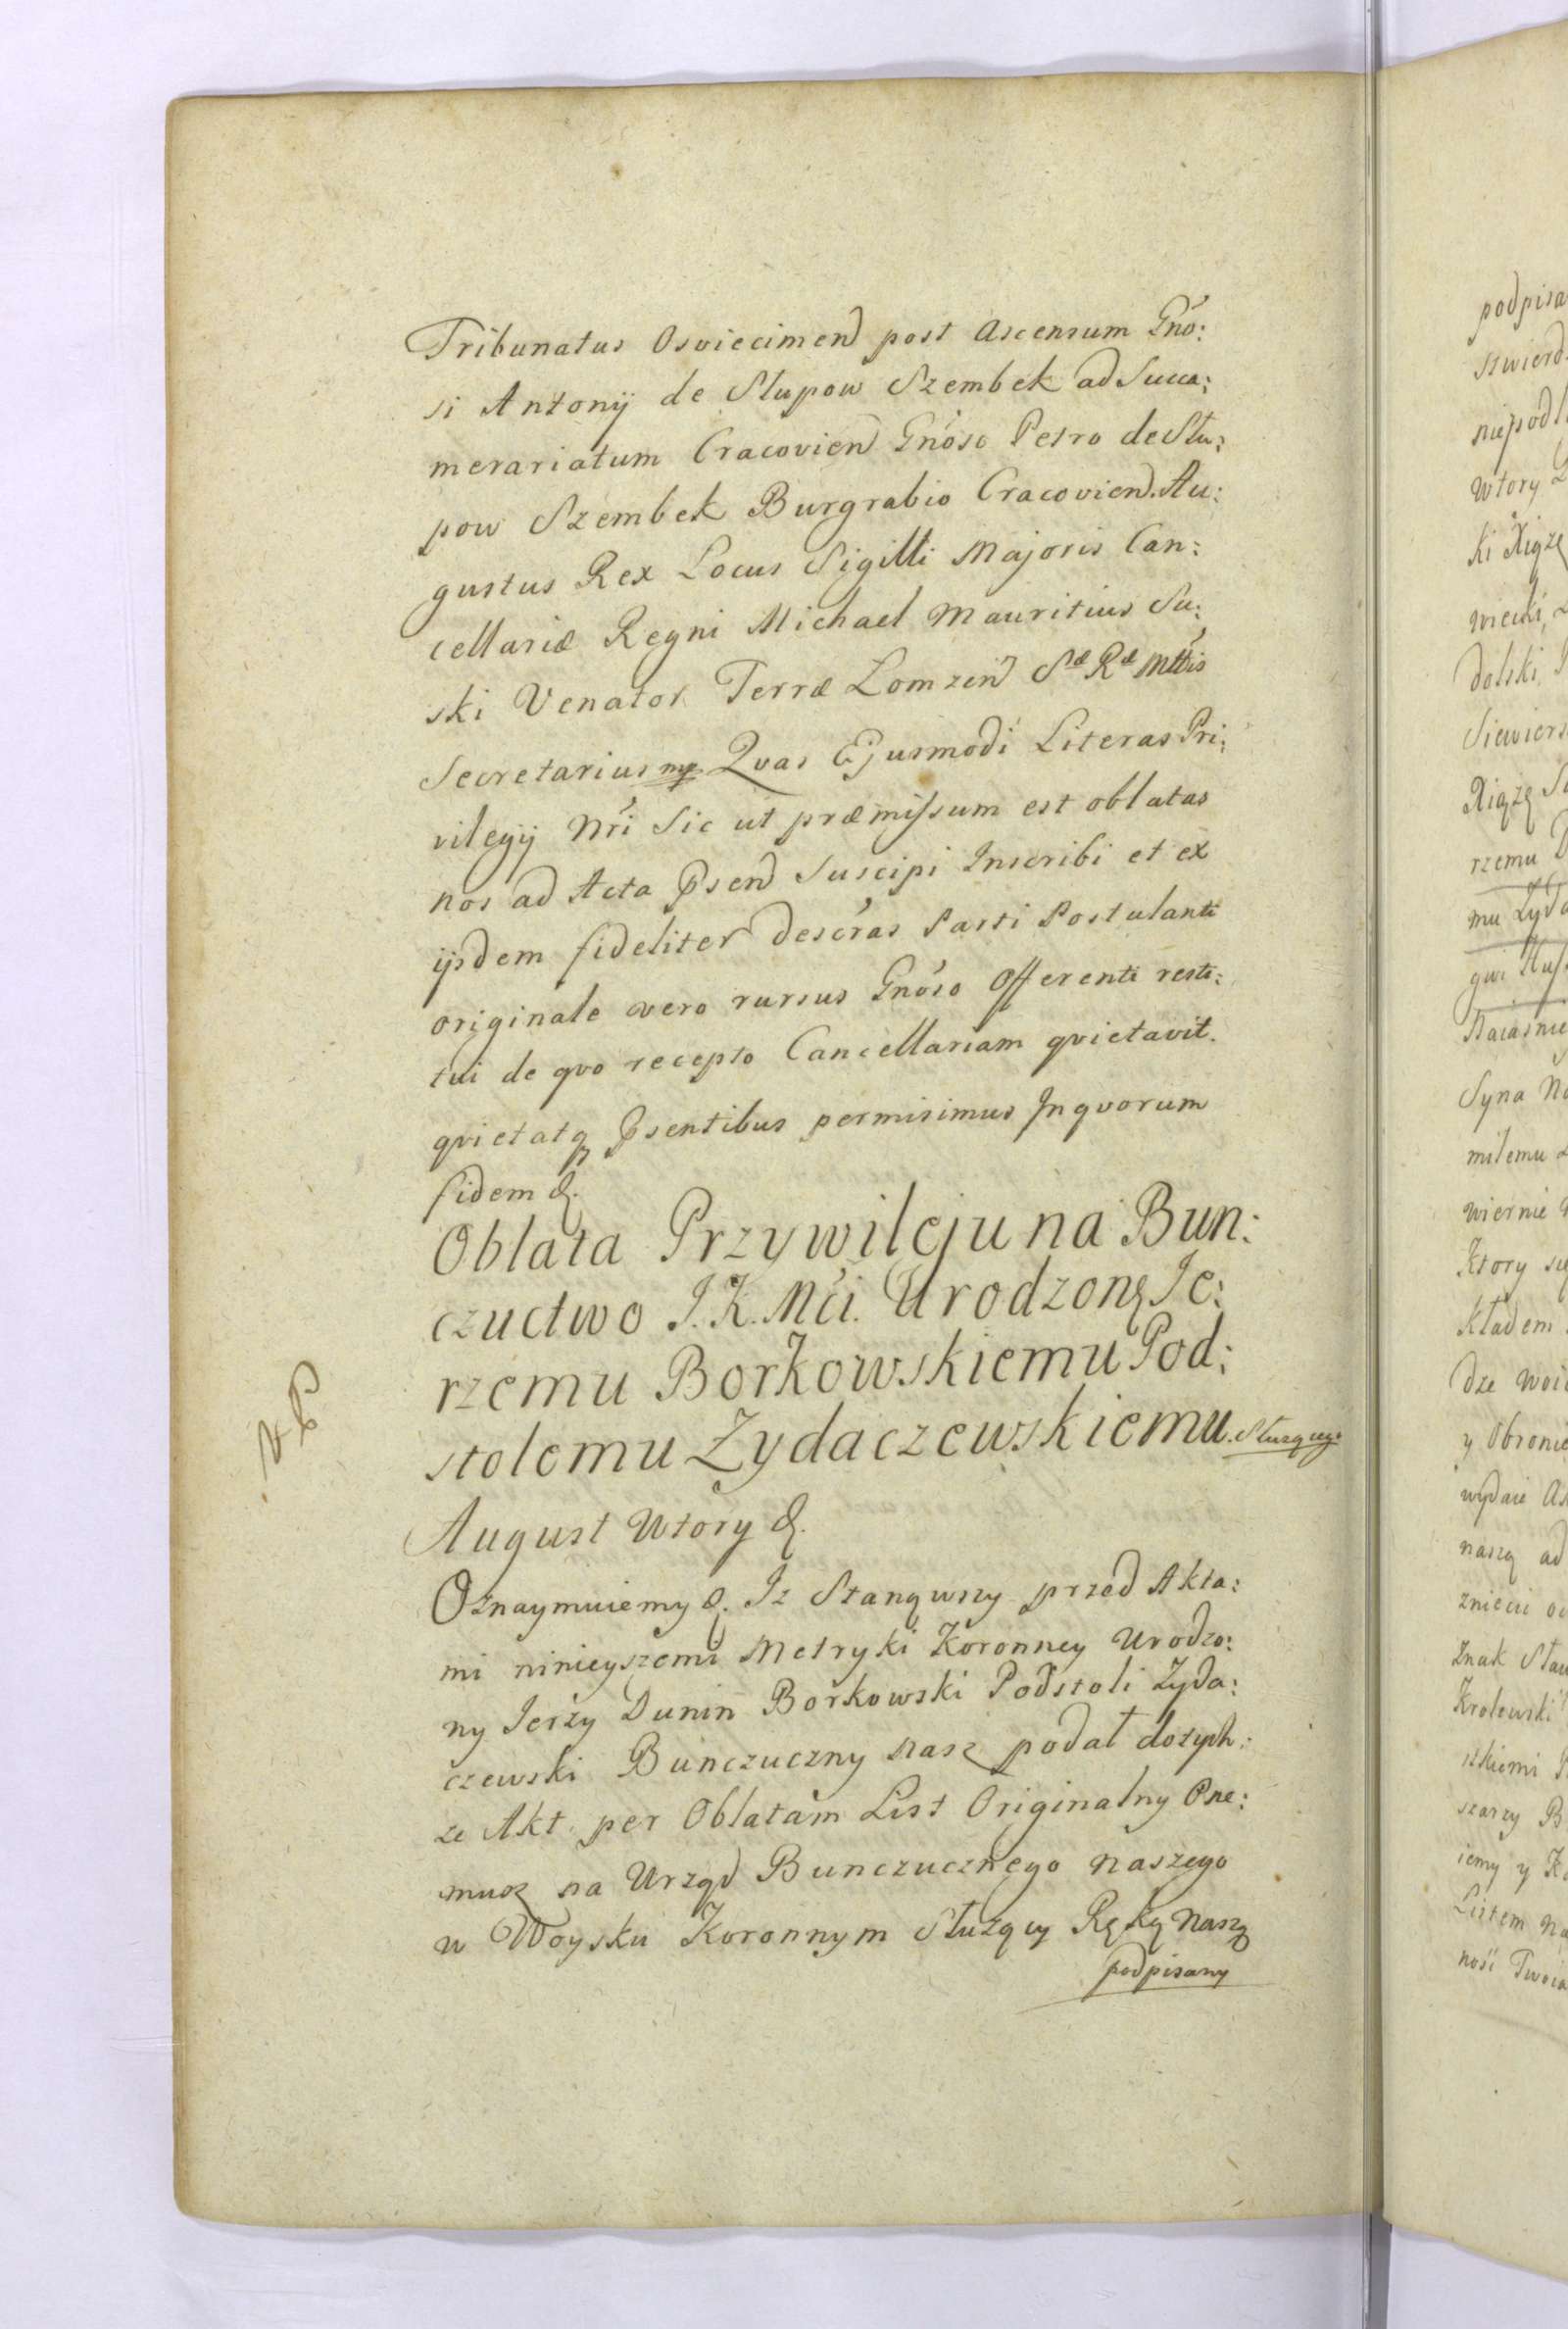 Tribunatus Osviecimen post Ascensum Gno:
si Antonij de Slupow Szembek ad Succa:
merariatum Cracovien Gnoso Petro de Slu:
pow Szembek Burgrabio Cracovien. Au:
gustus Rex Locus Sigilli Majoris Can:
cellariæ Regni Michael Mauritius Su:
ski Venator Terræ Lomzen Sæ Ræ Mttis
Secretarius mp Qvas Ejusmodi Literas Pri:
vilegij Nri Sic ut præmissum est oblatas
nos ad Acta Psen Suscipi Inscribi et ex
ijsdem fideliter descras Parti Postulanti
originale vero rursus Gnoso Offerenti resti:
tui de qvo recepto Cancellariam qvietavit.
qvietatq Psentibus permisimus Inqvorum
fidem &.
Oblata Przywileju na Bun:
czuctwo J.K.Mci. Urodzonę Je:
rzemu Borkowskiemu Pod:
stolemu Zydaczewskiemu. Służącego
August Wtory &.
Oznaymuiemy &. Iz Stanąwszy przed Akta:
mi ninieyszemi Metryki Koronney Urodzo:
ny Jerzy Dunin Borkowski Podstoli Zyda:
czewski Bunczuczny Nasz podał dotych:
ze Akt per Oblatam List Originalny One:
muz na Urząd Bunczucznego Naszego
w Woysku Koronnym Służący Ręką Naszą
podpisany
podpisa
niepodl
Wtory
Ki Xiąże
dolski
Siewiers
Xiążę
rzemu
mu Zyda
Naiasnie
Syna Na
miłemu
wiernie
Ktory się
Kładem
dze
y Obronie
wydaie
naszą ad
Znak Sław
Krolewski
iemy y
Listem Na
ność Twoia